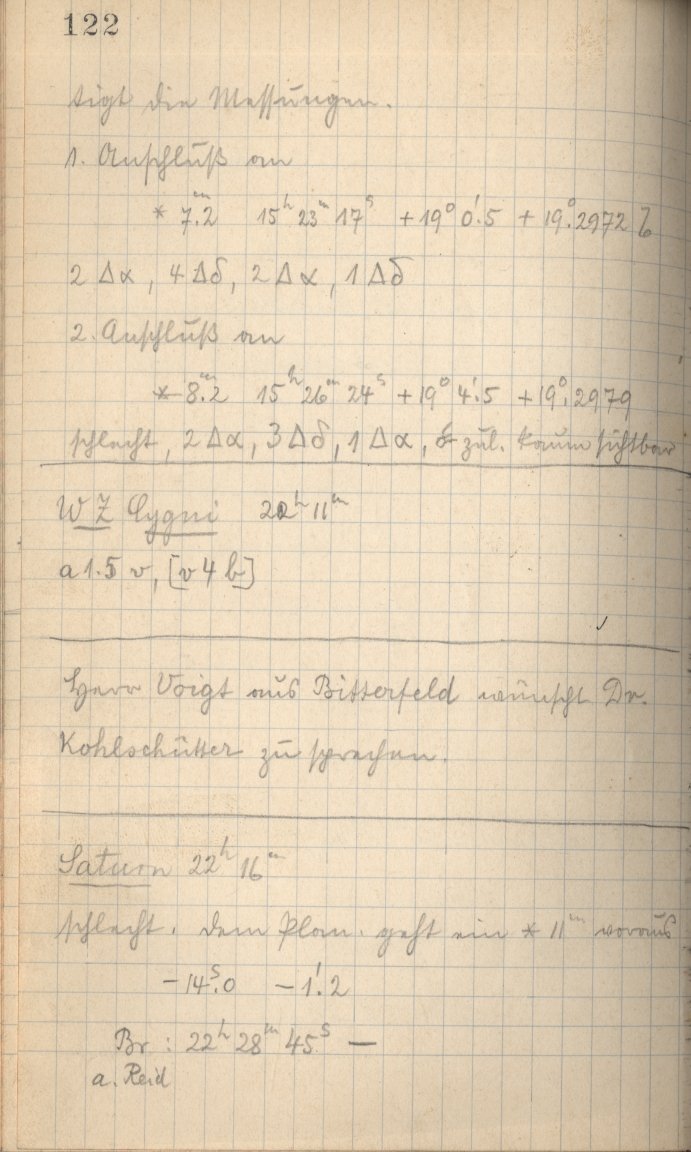 122
tigt die Messungen.
1. Anschluß an
* 7.ᵐ2 15ʰ 23ᵐ 17ˢ +19° 0!5 + 19°.2972
2 Δα, 4 Δδ, 2 Δα, 1 Δδ
2. Anschluß an
* 8.ᵐ2 15ʰ 26ᵐ 24ˢ +19° 4!5 +19°.2979
schlecht, 2 Δα, 3 Δδ, 1 Δα, zul. kaum sichtbar
WZ Cygni 22ʰ 11ᵐ
a 1.5 v, [v 4 b]
Herr Voigt aus Bitterfeld wünscht Dr.
Kohlschütter zu sprechen.
Saturn 22ʰ 16ᵐ
schlecht. dem Plan. geht ein * 11ᵐ voraus
−14.ˢ0 −1!2
Br : 22ʰ 28ᵐ 45ˢ —
a. Reid